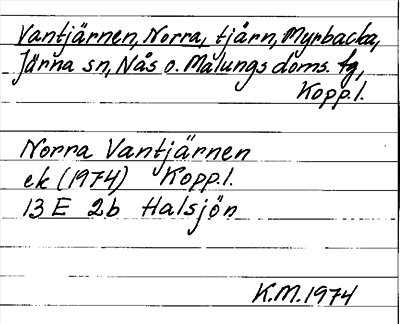 Vantjärnen, Norra, tjärn, Myrbacka,
Järna sn, Nås o. Malungs doms. fg,
Kopp.l.
Norra Vantjärnen
ek (1974) Kopp.l.
13 E 2b Halsjön
K.M. 1974